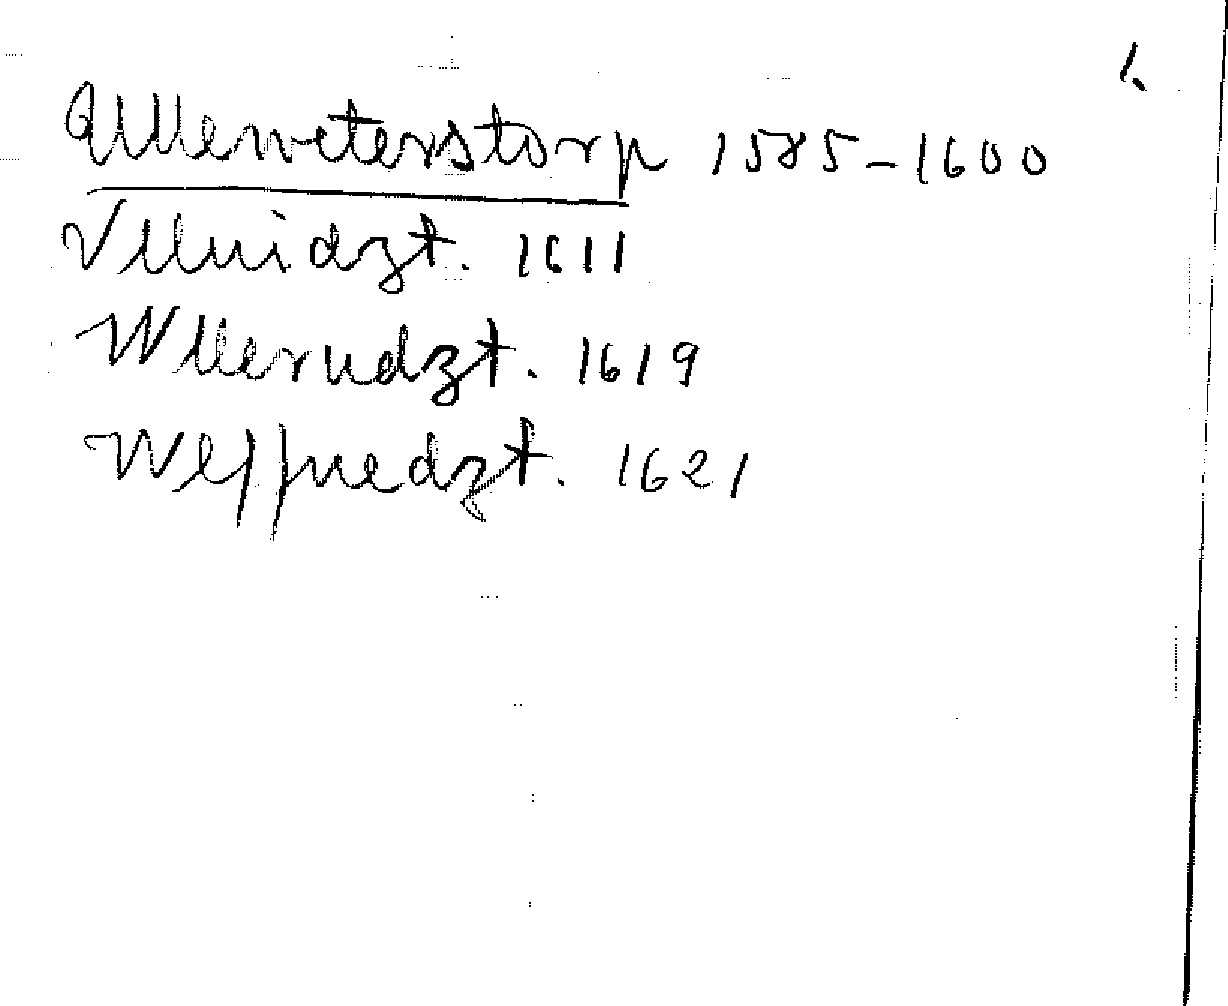 1.
Ulleweterstorp 1585-1600
Vlluidzt. 1611
Wllerudzt. 1619
Welffuedzt. 1621